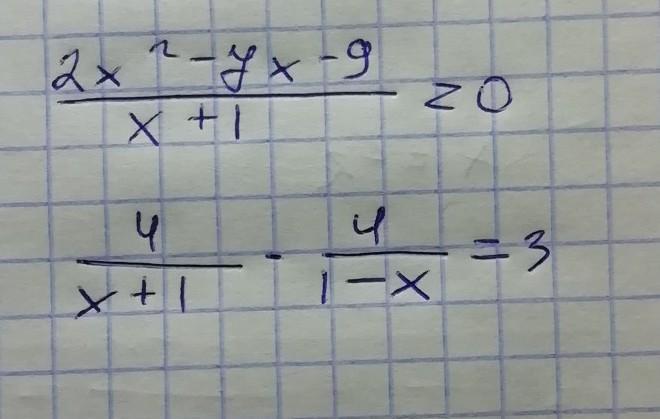 (2x² - 7x - 9)/(x + 1) = 0
4/(x + 1) - 4/(1 - x) = 3